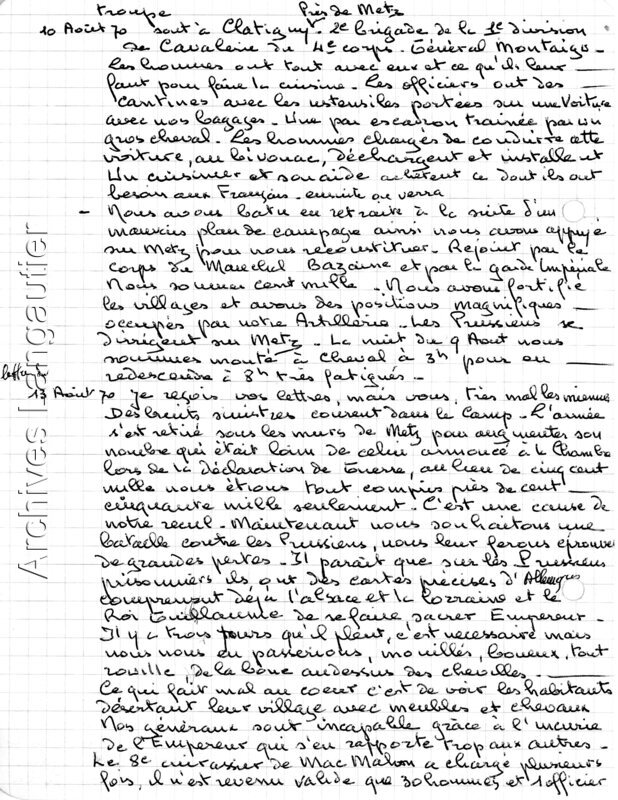 troupe Près de Metz
10 Août 70 sont à Clatigny - 2e brigade de la 1e division
de Cavalerie du 4e corps - Général Montaigu -
Les hommes ont tout avec eux et ce qu'il leur
faut pour faire la cuisine - Les officiers ont des
cantines avec les ustensiles portées sur une Voiture
avec nos bagages - Une par escadron trainée par un
gros cheval. Les hommes chargés de conduire cette
voiture, au bivouac, déchargent et installent
Un cuisinier et son aide achètent ce dont ils ont
besoin aux Français - ensuite on verra
- Nous avons batu en retraite à la suite d'un
mauvais plan de campagne ainsi nous avons appuyé
sur Metz pour nous reconstituer - Rejoint par le
corps du Maréchal Bazaine et par la garde Impériale
Nous sommes cent mille - Nous avons fortifié
les villages et avons des positions magnifiques
occupés par notre Artillerie - Les Prussiens se
dirigent sur Metz - La nuit du 9 Aout nous
sommes monté à cheval à 3h pour en
redescendre à 8h très fatigués -
13 Août 70 Je reçois vos lettres, mais vous, très mal les miennes
Des bruits sinistres courent dans le Camp - L'armée
s'est retiré sous les murs de Metz pour augmenter son
nombre qui était loin de celui annoncé à la Chambre
lors de la déclaration de Guerre, au lieu de cinq cent
mille nous étions tout compris près de cent
cinquante mille seulement - C'est une cause de
notre recul - Maintenant nous souhaitons une
bataille contre les Prussiens, nous leur ferons éprouver
de grandes pertes - Il parait que sur les Prussiens
prisonniers ils ont des cartes précises d'Allemagne
comprenant déjà l'alsace et la Lorraine et le
Roi Guillaume de se faire sacrer Empereur -
Il y a trois jours qu'il pleut, c'est necessaire mais
nous nous en passerions, mouillés, boueux, tout
rouille, de la boue audessus des chevilles -
Ce qui fait mal au coeur c'est de voir les habitants
désertant leur village avec meubles et chevaux
Nos généraux sont incapable grâce à l'incurie
de l'Empereur qui s'en rapporte trop aux autres -
Le 8e cuirassier de Mac Mahon a chargé plusieurs
fois, il n'est revenu valide que 30 hommes et 1 officier
Archives Langautier